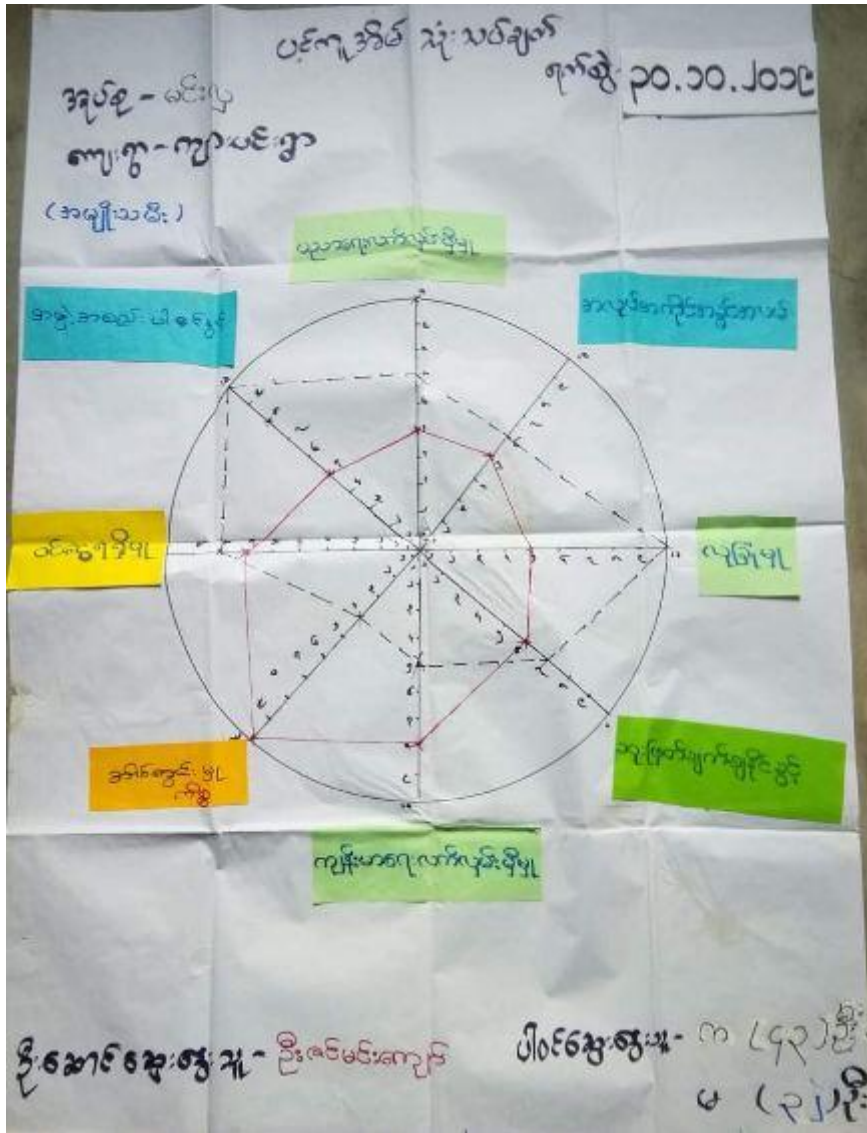 ပင့်ကူအိမ် သုံးသပ်ချက်
ရက်စွဲ- ၃၀.၁၀.၂၀၁၉
အုပ်စု - မင်းလှ
ကျေးရွာ - ကျားမင်းရွာ
(အမျိုးသမီး)
ပညာရေးလက်လှမ်းမှီမှု
အဖွဲ့အစည်းပါဝင်ခွင့်
အလုပ်အကိုင်အခွင့်အလမ်း
ဝင်ငွေရရှိမှု
လုံခြုံမှု
အိမ်တွင်းမှု
ကိစ္စ
ဆုံးဖြတ်ချက်ချနိုင်ခွင့်
ကျန်းမာရေးလက်လှမ်းမှီမှု
ဦးဆောင်ဆွေးနွေးသူ - ဦးဇင်မင်းကျော်
ပါဝင်ဆွေးနွေးသူ - က (၄၃) ဦး
မ (၃၂) ဦး